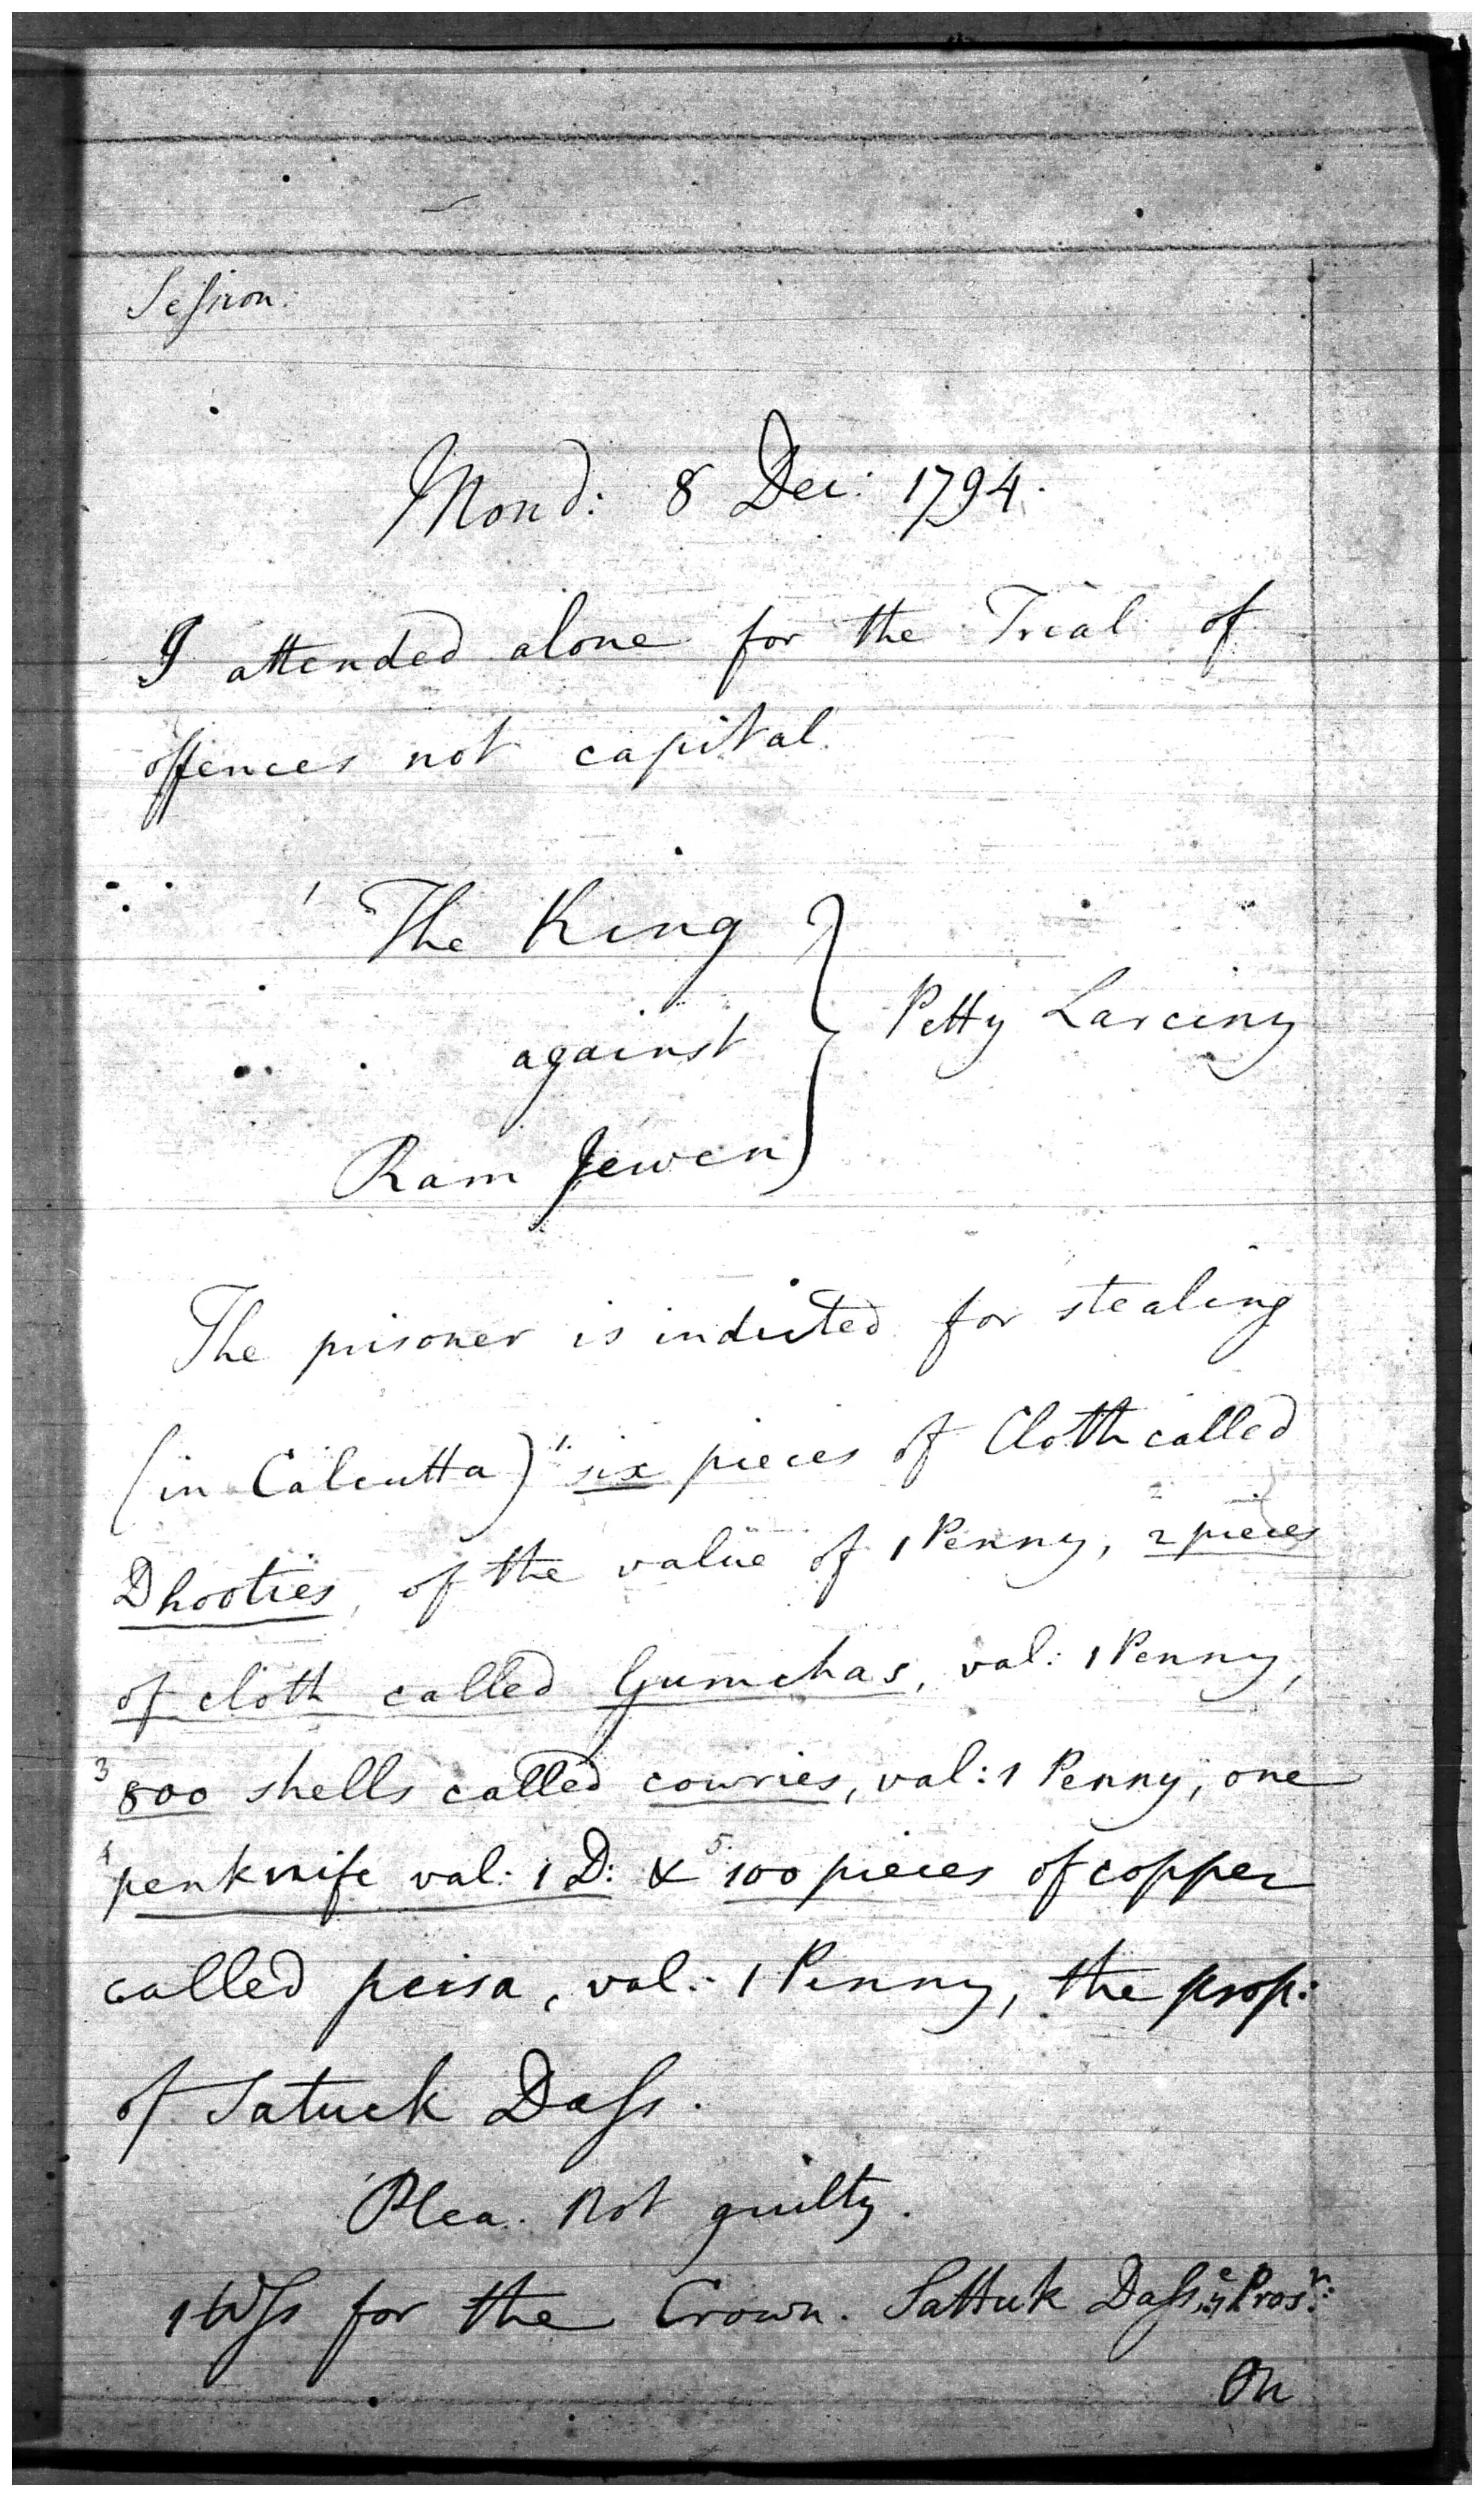 Session.
Mond: 8 Dec: 1794.
I attended alone for the Trial of
offences not capital.
1 The King
against
Petty Larceny
Ram Jewen
The prisoner is indicted for stealing
(in Calcutta) 1. six pieces of Cloth called
Dhooties, of the value of 1 Penny, 2 pieces
of cloth called Gumchas, val: 1 Penny,
3 800 shells called cowries, val: 1 Penny, one
4 penknife val: 1 D: & 5. 100 pieces of copper
called peisa, val: 1 Penny, the prop:
of Satuck Dass.
Plea. Not guilty.
1 Wss for the Crown. Sattuk Dass, ye Prosr:
On